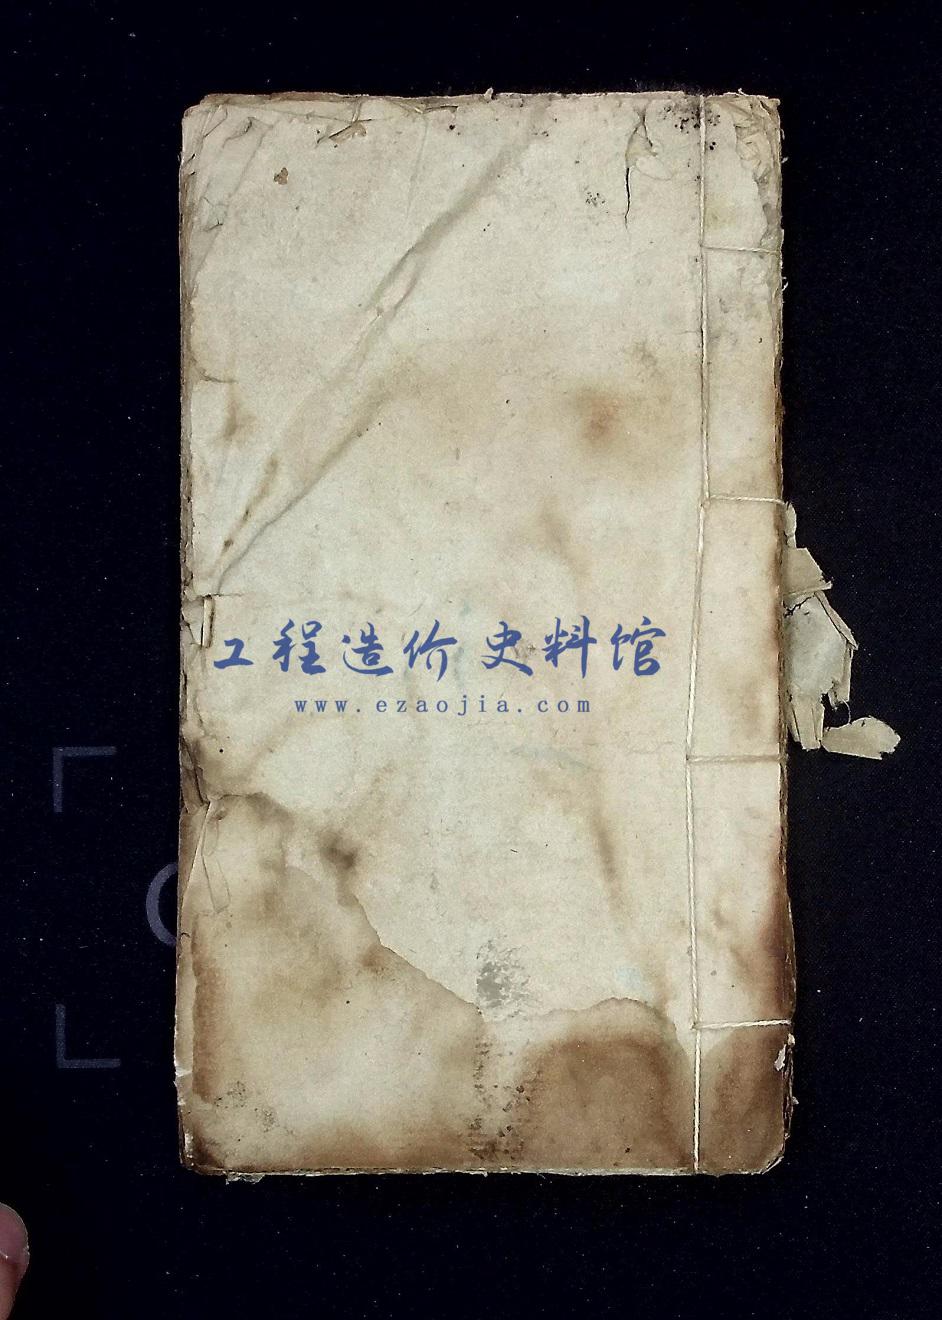 工程造价史料馆
www.ezaojia.com